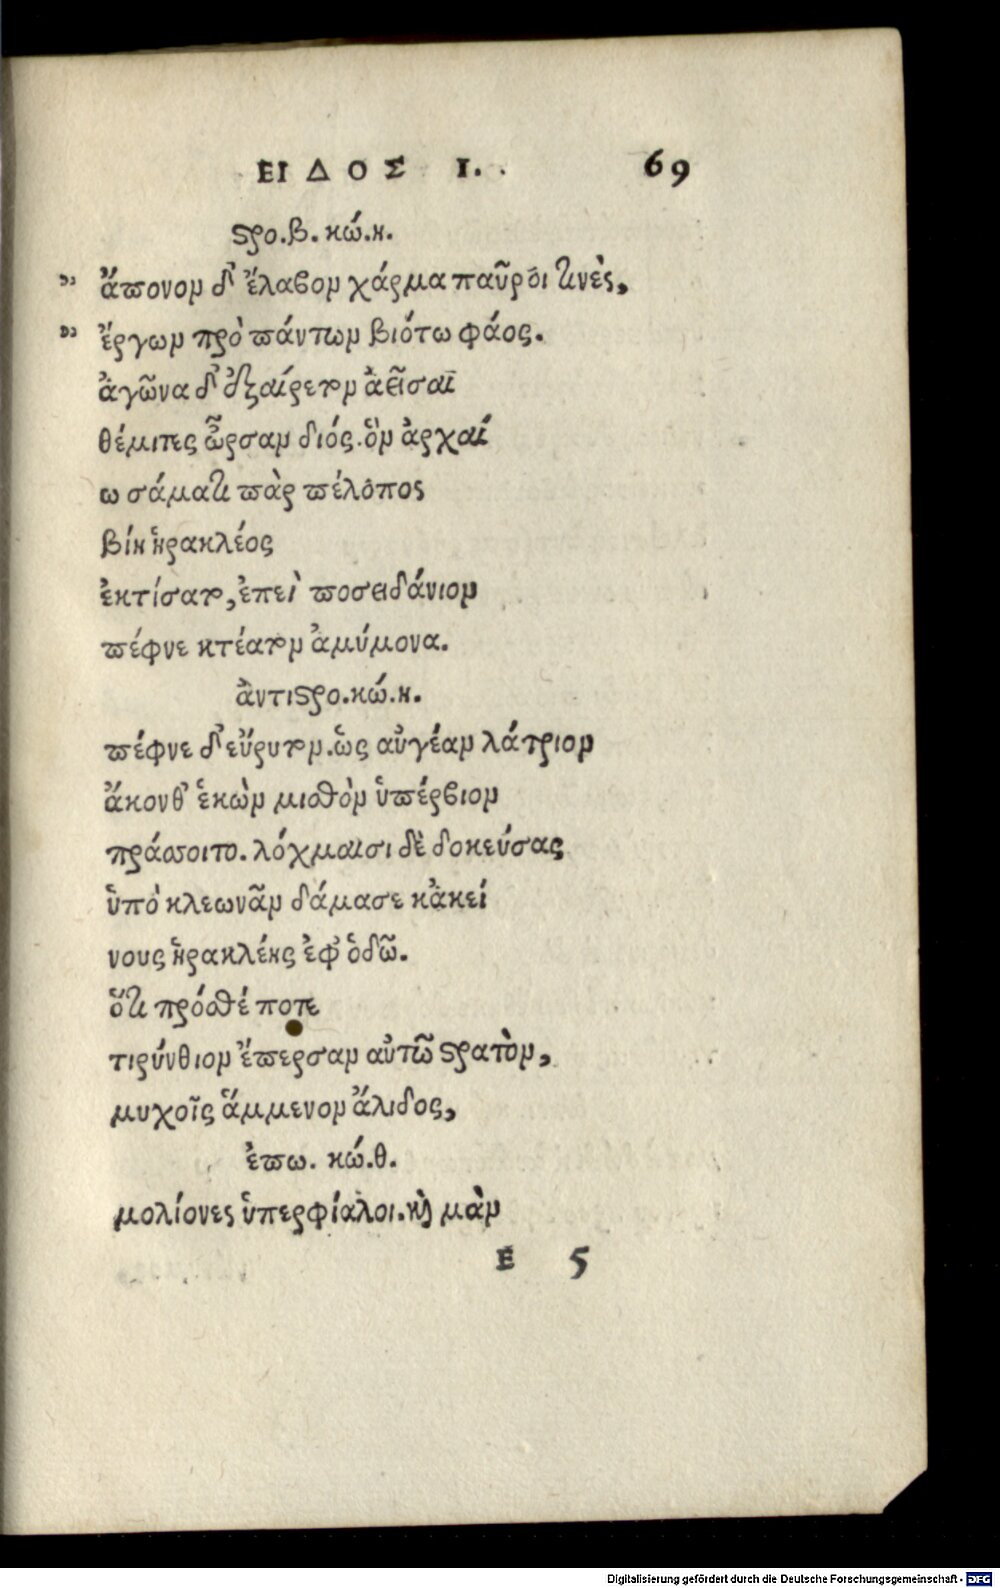 ΕΙΔΟΣ Ι. 69
ϛρο.β. κώ.η.
ἄπονον δ' ἔλαβον χάρμα παῦροί τινὲς,
ἔργων πρὸ πάντων βιότω φάος.
ἀγῶνα δ' ἐξαίρετον ἀεῖσαι
θέμιτες ὦρσαν διός. ὃν ἀρχαί
ω σάματι πὰρ πέλοπος
βίη ἡρακλέος
ἐκτίσατο, ἐπεὶ ποσειδάνιον
πέφνε κτέατον ἀμύμονα.
ἀντιϛρο.κώ.η.
πέφνε δ' εὔρυτον. ὡς αὐγέαν λάτριον
ἄκονθ' ἑκὼν μισθὸν ὑπέρβιον
πράσσοιτο. λόχμαισι δὲ δοκεύσας
ὑπὸ κλεωνᾶν δάμασε κἀκεί
νους ἡρακλέης ἐφ' ὁδῶ.
ὅτι πρόσθέ ποτε
τιρύνθιον ἔπερσαν αὐτῶ ϛρατὸν,
μυχοῖς ἅμμενον ἄλιδος,
ἐπω. κώ.θ.
μολίονες ὑπερφίαλοι. καὶ μὰν
Ε 5
Digitalisierung gefördert durch die Deutsche Forschungsgemeinschaft - DFG